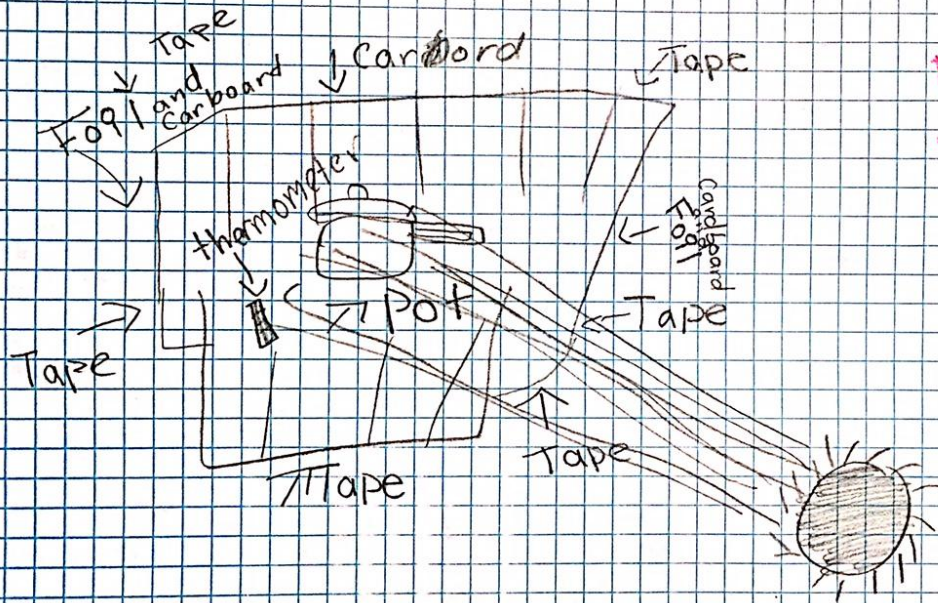 Tape
Foql and
Carboard
Carbord
Tape
thermometer
Cardboard
and
Foql
Pot
Tape
Tape
Tape
Tape